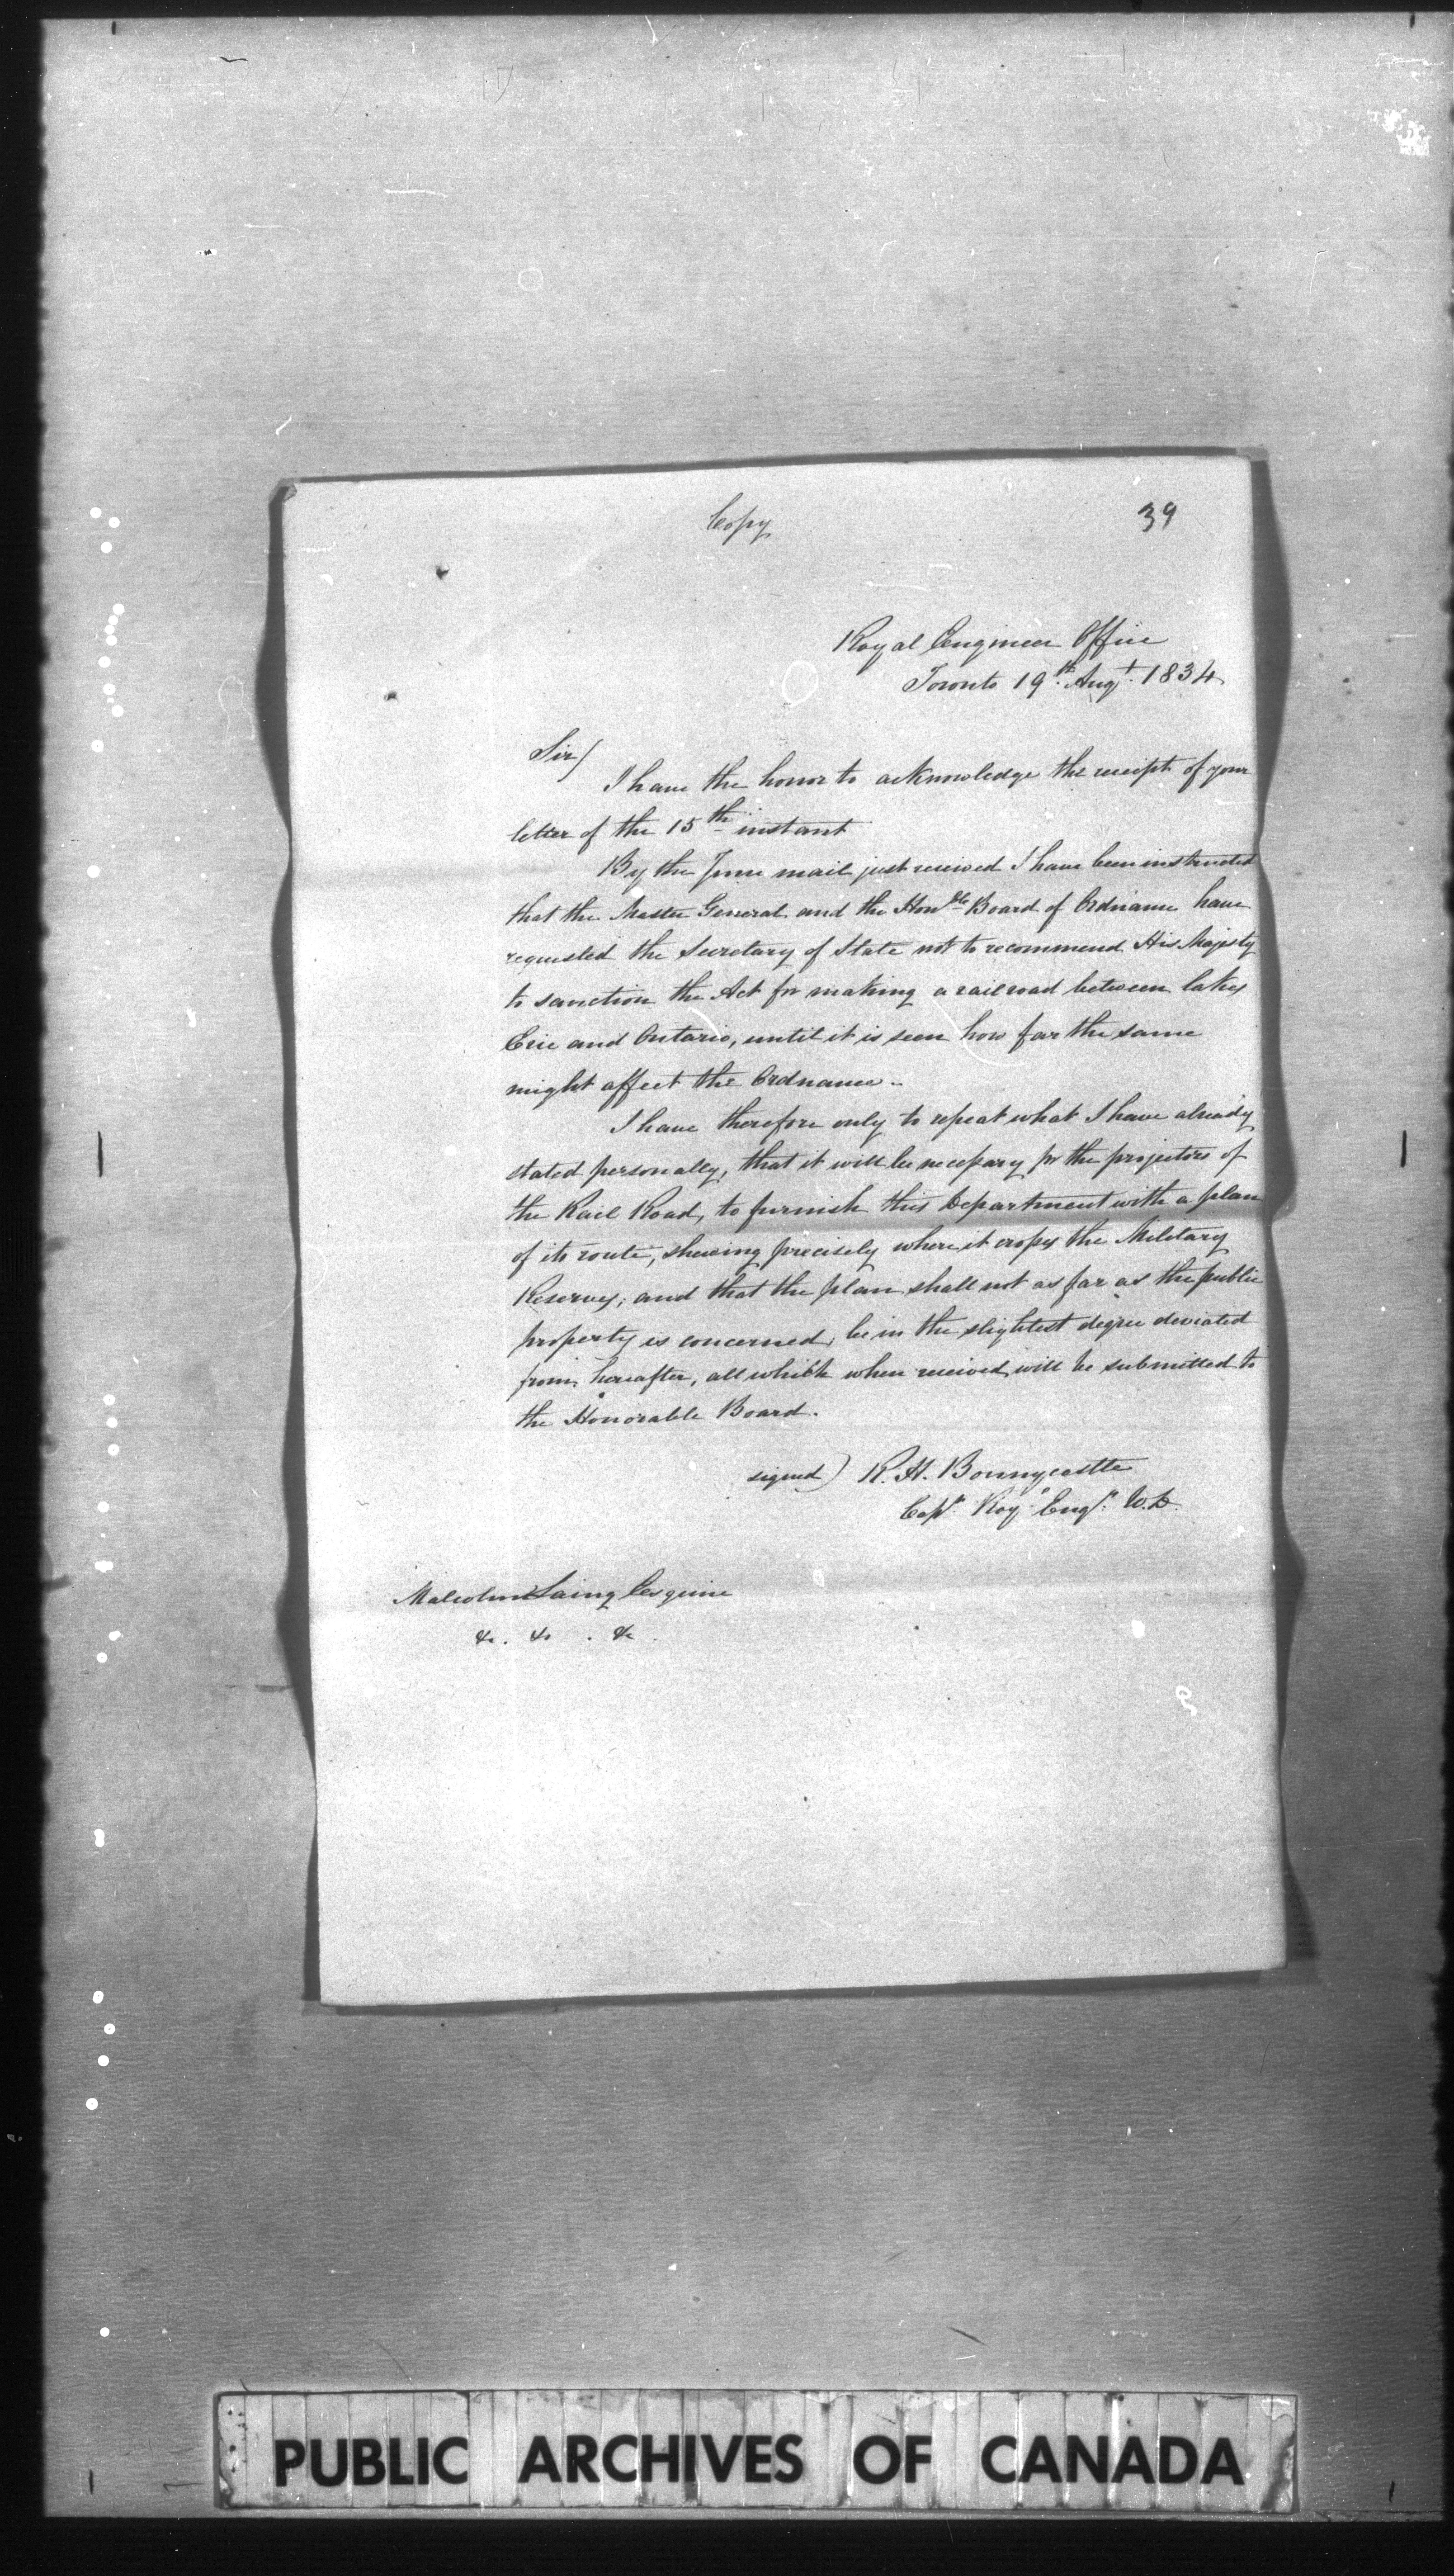 Copy
39
Royal Engineer Office
Toronto 19th Augt. 1834
Sir/
I have the honor to acknowledge the receipt of your
letter of the 15th instant
By the June mail just received I have been instructed
that the Master General and the Honble Board of Ordnance have
requested the Secretary of State not to recommend His Majesty
to sanction the Act for making a railroad between lakes
Erie and Ontario, until it is seen how far the same
might affect the Ordnance.
I have therefore only to repeat what I have already
stated personally, that it will be necessary for the projectors of
the Rail Road, to furnish this Department with a plan
of its route, shewing precisely where it crosses the Military
Reserves; and that the plan shall not as far as the public
property is concerned, be in the slightest degree deviated
from hereafter, all which when received will be submitted to
the Honorable Board.
signed) R. H. Bonnycastle
Capt. Roy Engr.
Malcolm Laing Esquire
&c. &c. &c
PUBLIC ARCHIVES OF CANADA